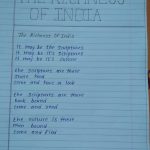 THE RICHNESS
OF INDIA
The Richness Of India
It may be the Scriptures
It may be it's Scriptures
It may be it's Culture
the scriptures are there
there
come and have a look
the scriptures are there
book bound
come and read
the culture is there
bound
come and find